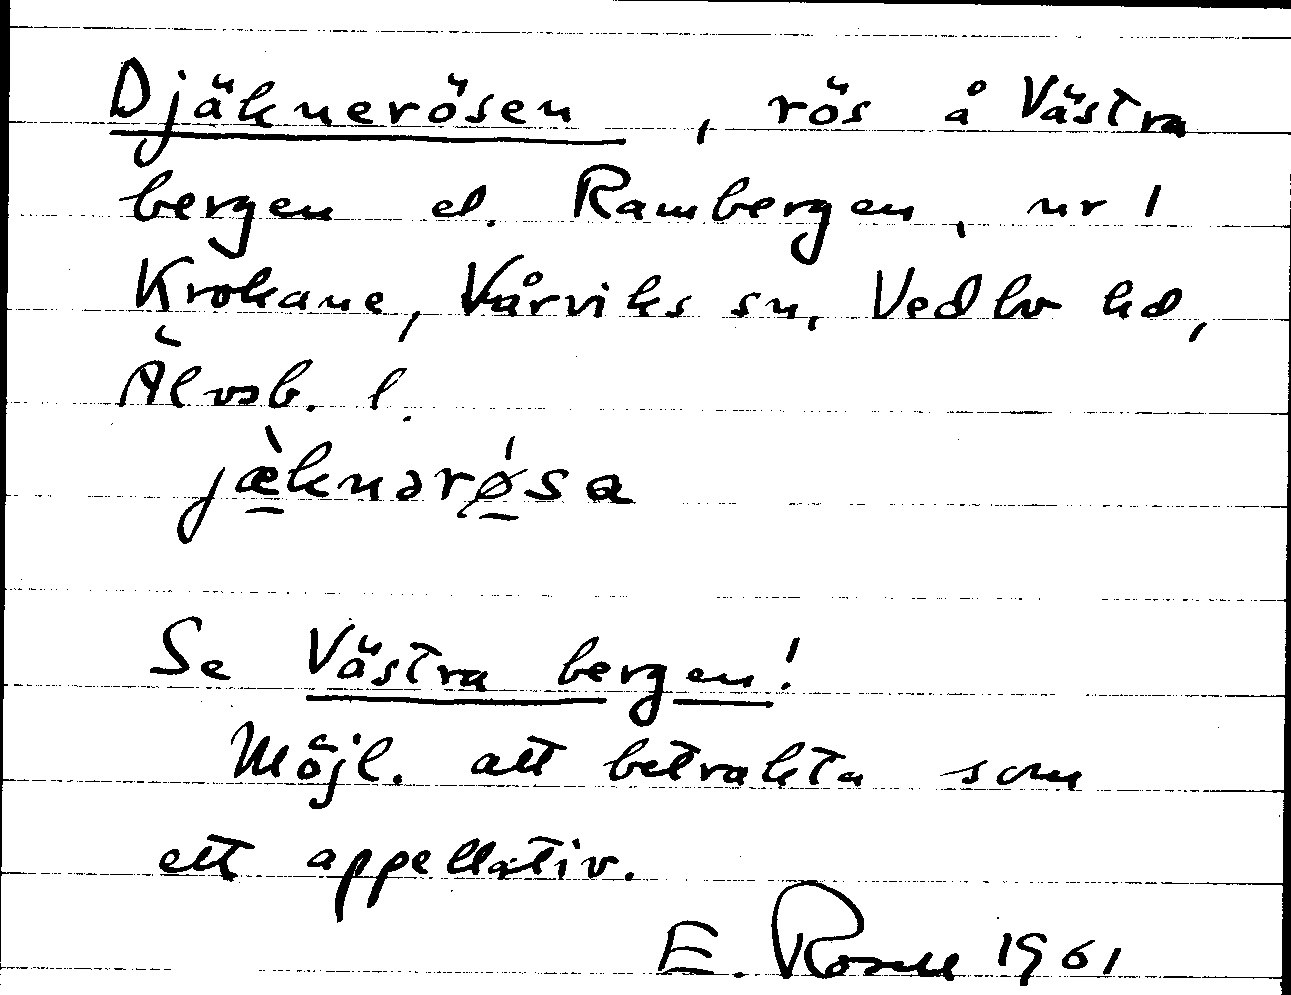 Djäknerösen, rös å Västra
bergen el. Rambergen, nr 1
Krokane, Vårviks sn, Vedbo hd,
Älvsb. l.
jæ̀knərǿsa
Se Västra bergen!
Möjl. att betrakta som
ett appellativ.
E. Rosell 1961